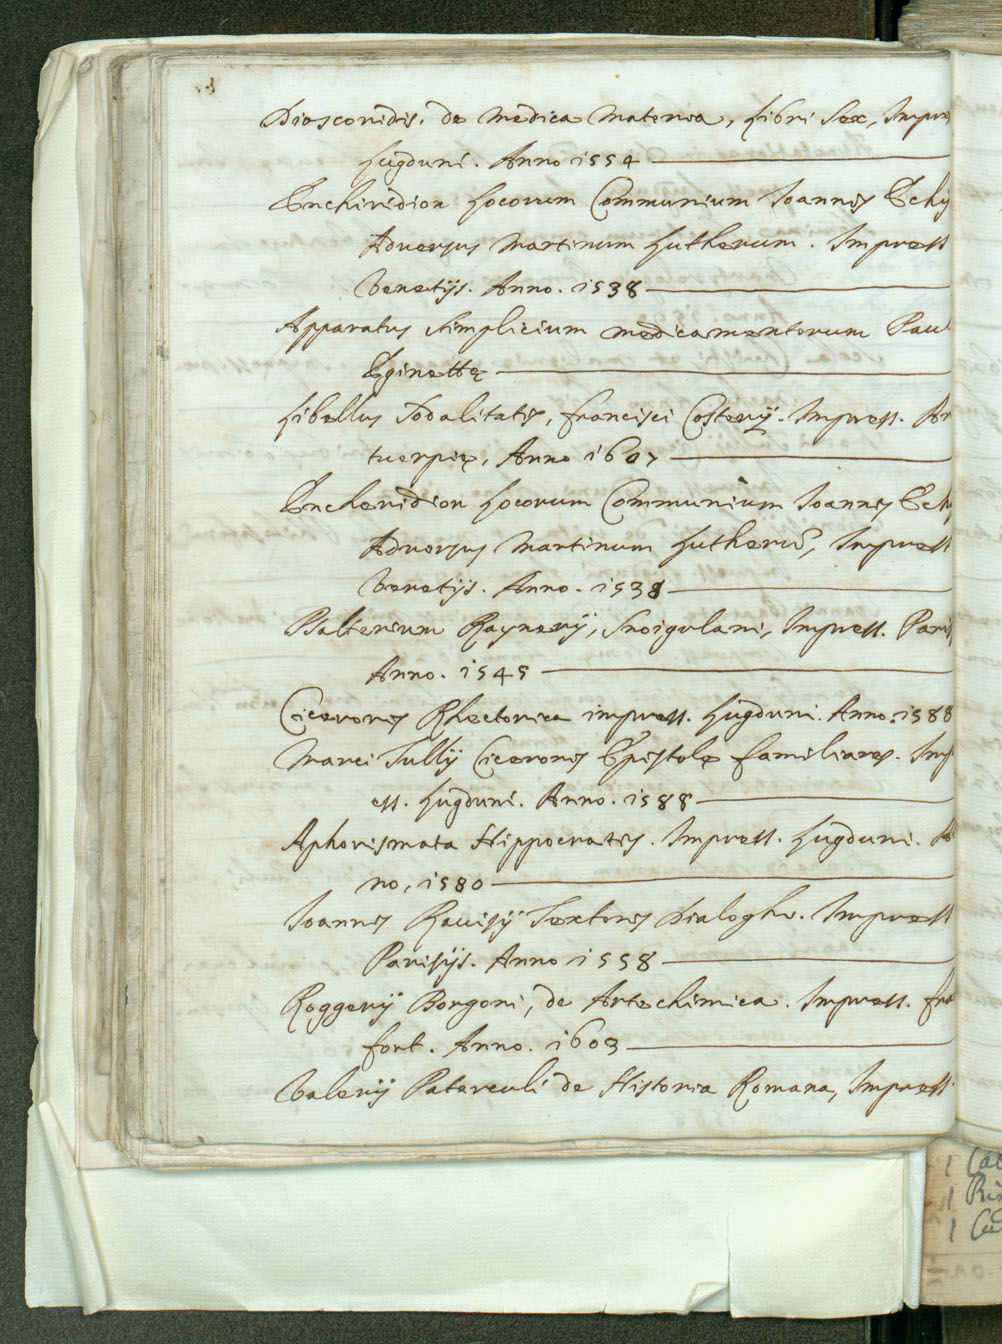 Dioscoridis. de Medica Materia, Libri Sex, Impre
Lugduni. Anno 1554
Enchiridion Locorum Communium Ioannis Echij
Adversus Martinum Lutherum. Impress
Venetijs. Anno. 1538
Apparatus simplicium medicamentorum Paul
Eginettę
Libellus Sodalitatis, Francisci Costerij. Impress. An
tuerpię, Anno 1607
Encheridion Locorum Communium Ioannis Echi
Adversus Martinum Lutherū, Impress
Venetijs. Anno. 1538
Psalterium Raynerij, Snoigulani, Impress. Paris
Anno. 1545
Ciceronis Rhectorica impress. Lugduni. Anno. 1588
Marci Tullij Ciceronis Epistolę familiares. Imp
ess. Lugduni. Anno. 1588
Aphorismata Hippocratis. Impress. Lugduni. An
no, 1580
Ioannis Rauisij Textoris Dialoghi. Impress
Parisijs. Anno 1558
Roggerij Borgoni, de Arte chimica. Impress. fra
fort. Anno. 1603
Valerij Paterculi de Historia Romana, Impress
1 Ca
1 Ri
1